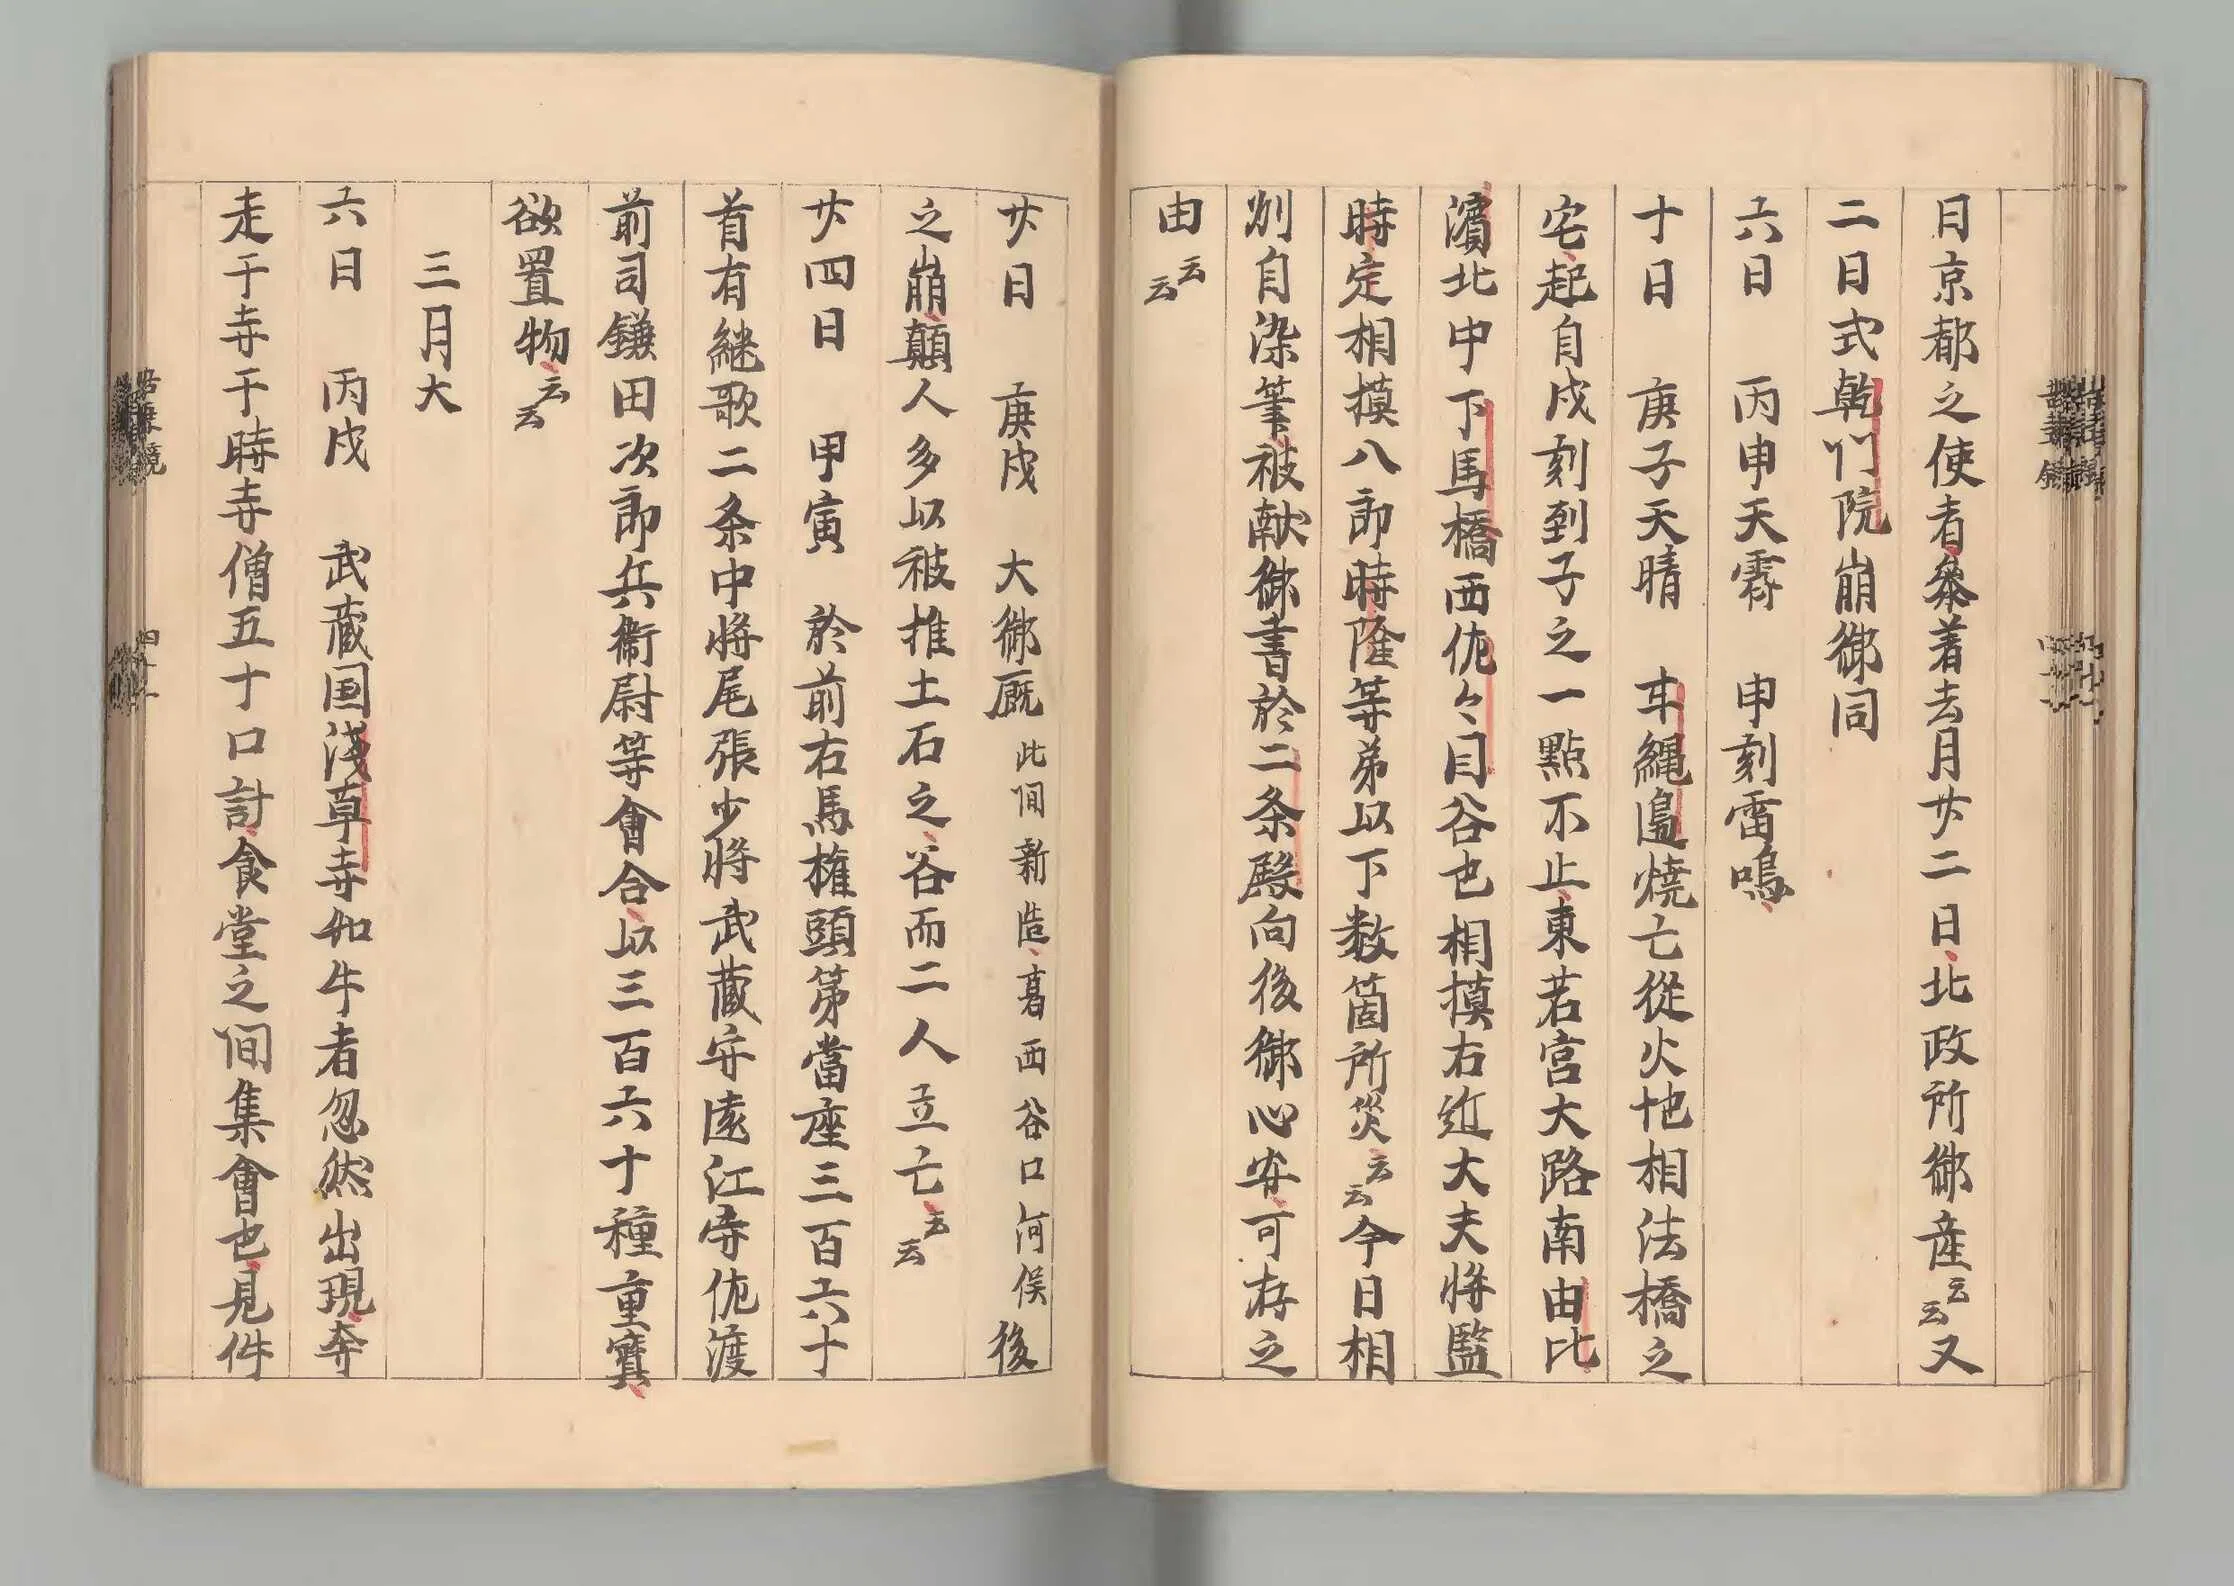 日京都之使者參着去月廿二日北政所御産云云又
二日式乾門院崩御同
六日　丙申天霽　申刻雷鳴
十日　庚子天晴　甘縄邊燒亡從火地相法橋之
宅起自戌刻到子之一點不止東若宮大路南由比
濱北中下馬橋西佐々目谷也相摸右近大夫將監
時定相摸八郎時隆等弟以下数箇所災云云今日相
刕自染筆被献御書於二条殿向後御心安可存之
由云云
廿日　庚戌　大御厩此間新造葛西谷口河俣後
之崩顛人多以被推土石之谷而二人立亡云云
廿四日　甲寅　於前右馬權頭第當座三百六十
首有継歌二条中將尾張少將武藏守遠江守佐渡
前司鎌田次郎兵衞尉等會合以三百六十種重寳
欲置物云云
三月大
六日　丙戌　武藏国淺草寺如牛者忽然出現奔
走于寺于時寺僧五十口計食堂之間集會也見件